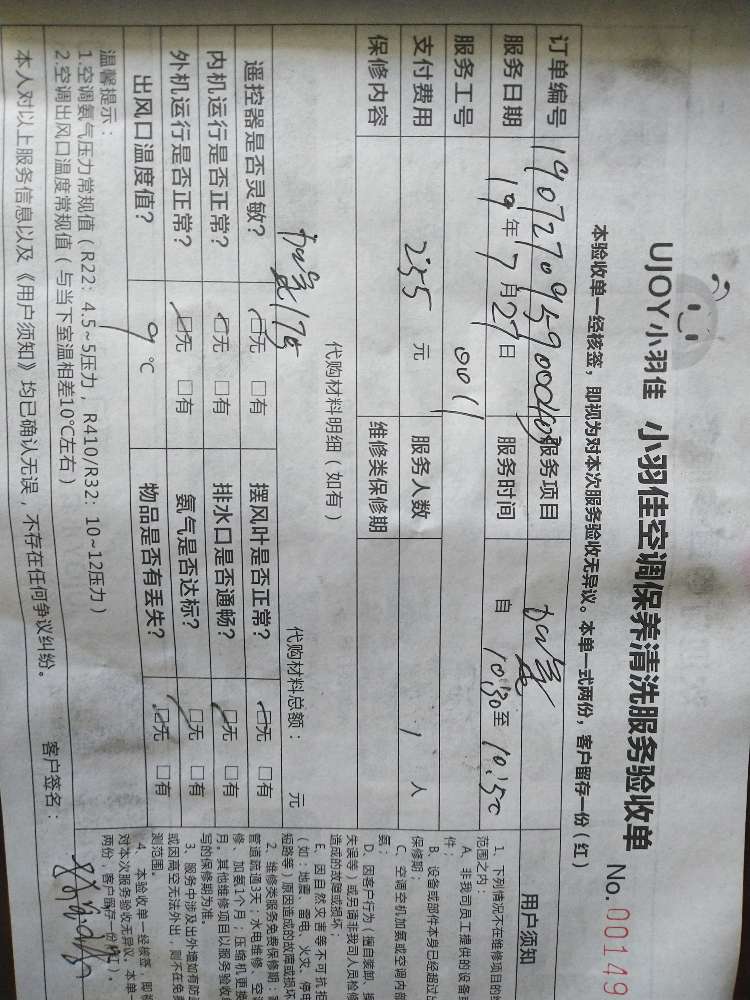 UJOY小羽佳 小羽佳空调保养清洗服务验收单
No. 00149
本验收单一经核签，即视为对本次服务验收无异议。本单一式两份，客户留存一份（红）
订单编号
服务项目 加氨
服务日期 19年7月27日
服务时间 自 10:30至 10:50
服务工号 001
支付费用 255 元
服务人数 1 人
保修内容
维修类保修期
代购材料明细（如有）
代购材料总额： 元
遥控器是否灵敏？ □无 □有
摆风叶是否正常？ □无 □有
内机运行是否正常？ □无 □有
排水口是否通畅？ □无 □有
外机运行是否正常？ □无 □有
氨气是否达标？ □无 □有
出风口温度值？ 9 ℃
物品是否有丢失？ □无 □有
温馨提示：
1.空调氨气压力常规值（R22：4.5~5压力，R410/R32：10~12压力）
2.空调出风口温度常规值（与当下室温相差10℃左右）
本人对以上服务信息以及《用户须知》均已确认无误，不存在任何争议纠纷。
客户签名：
用户须知
1、下列情况不在维修项目的
范围之内：
A、非我司员工提供的设备
件；
B、设备或部件本身已经超过
保修期；
C、空调夺机加氨或空调内部
氨；
D、因客户行为（擅自装卸、
失误等）或另请非我司人员检修
造成的故障或损坏
E、因自然灾害等不可抗拒
（如：地震、雷电、火灾、停电
短路等）原因造成的故障或损坏
2、维修类服务免费保修期：
管道疏通3天；水电维修、空
修、加氨1个月；压缩机更换
月。其他维修项目以服务验收
写的保修期为准。
3、服务中涉及出外墙如有防
或因高空无法外出，则不在免
测范围。
4、本验收单一经核签，即视
对本次服务验收无异议，本单一
两份，客户留存一份（红）。